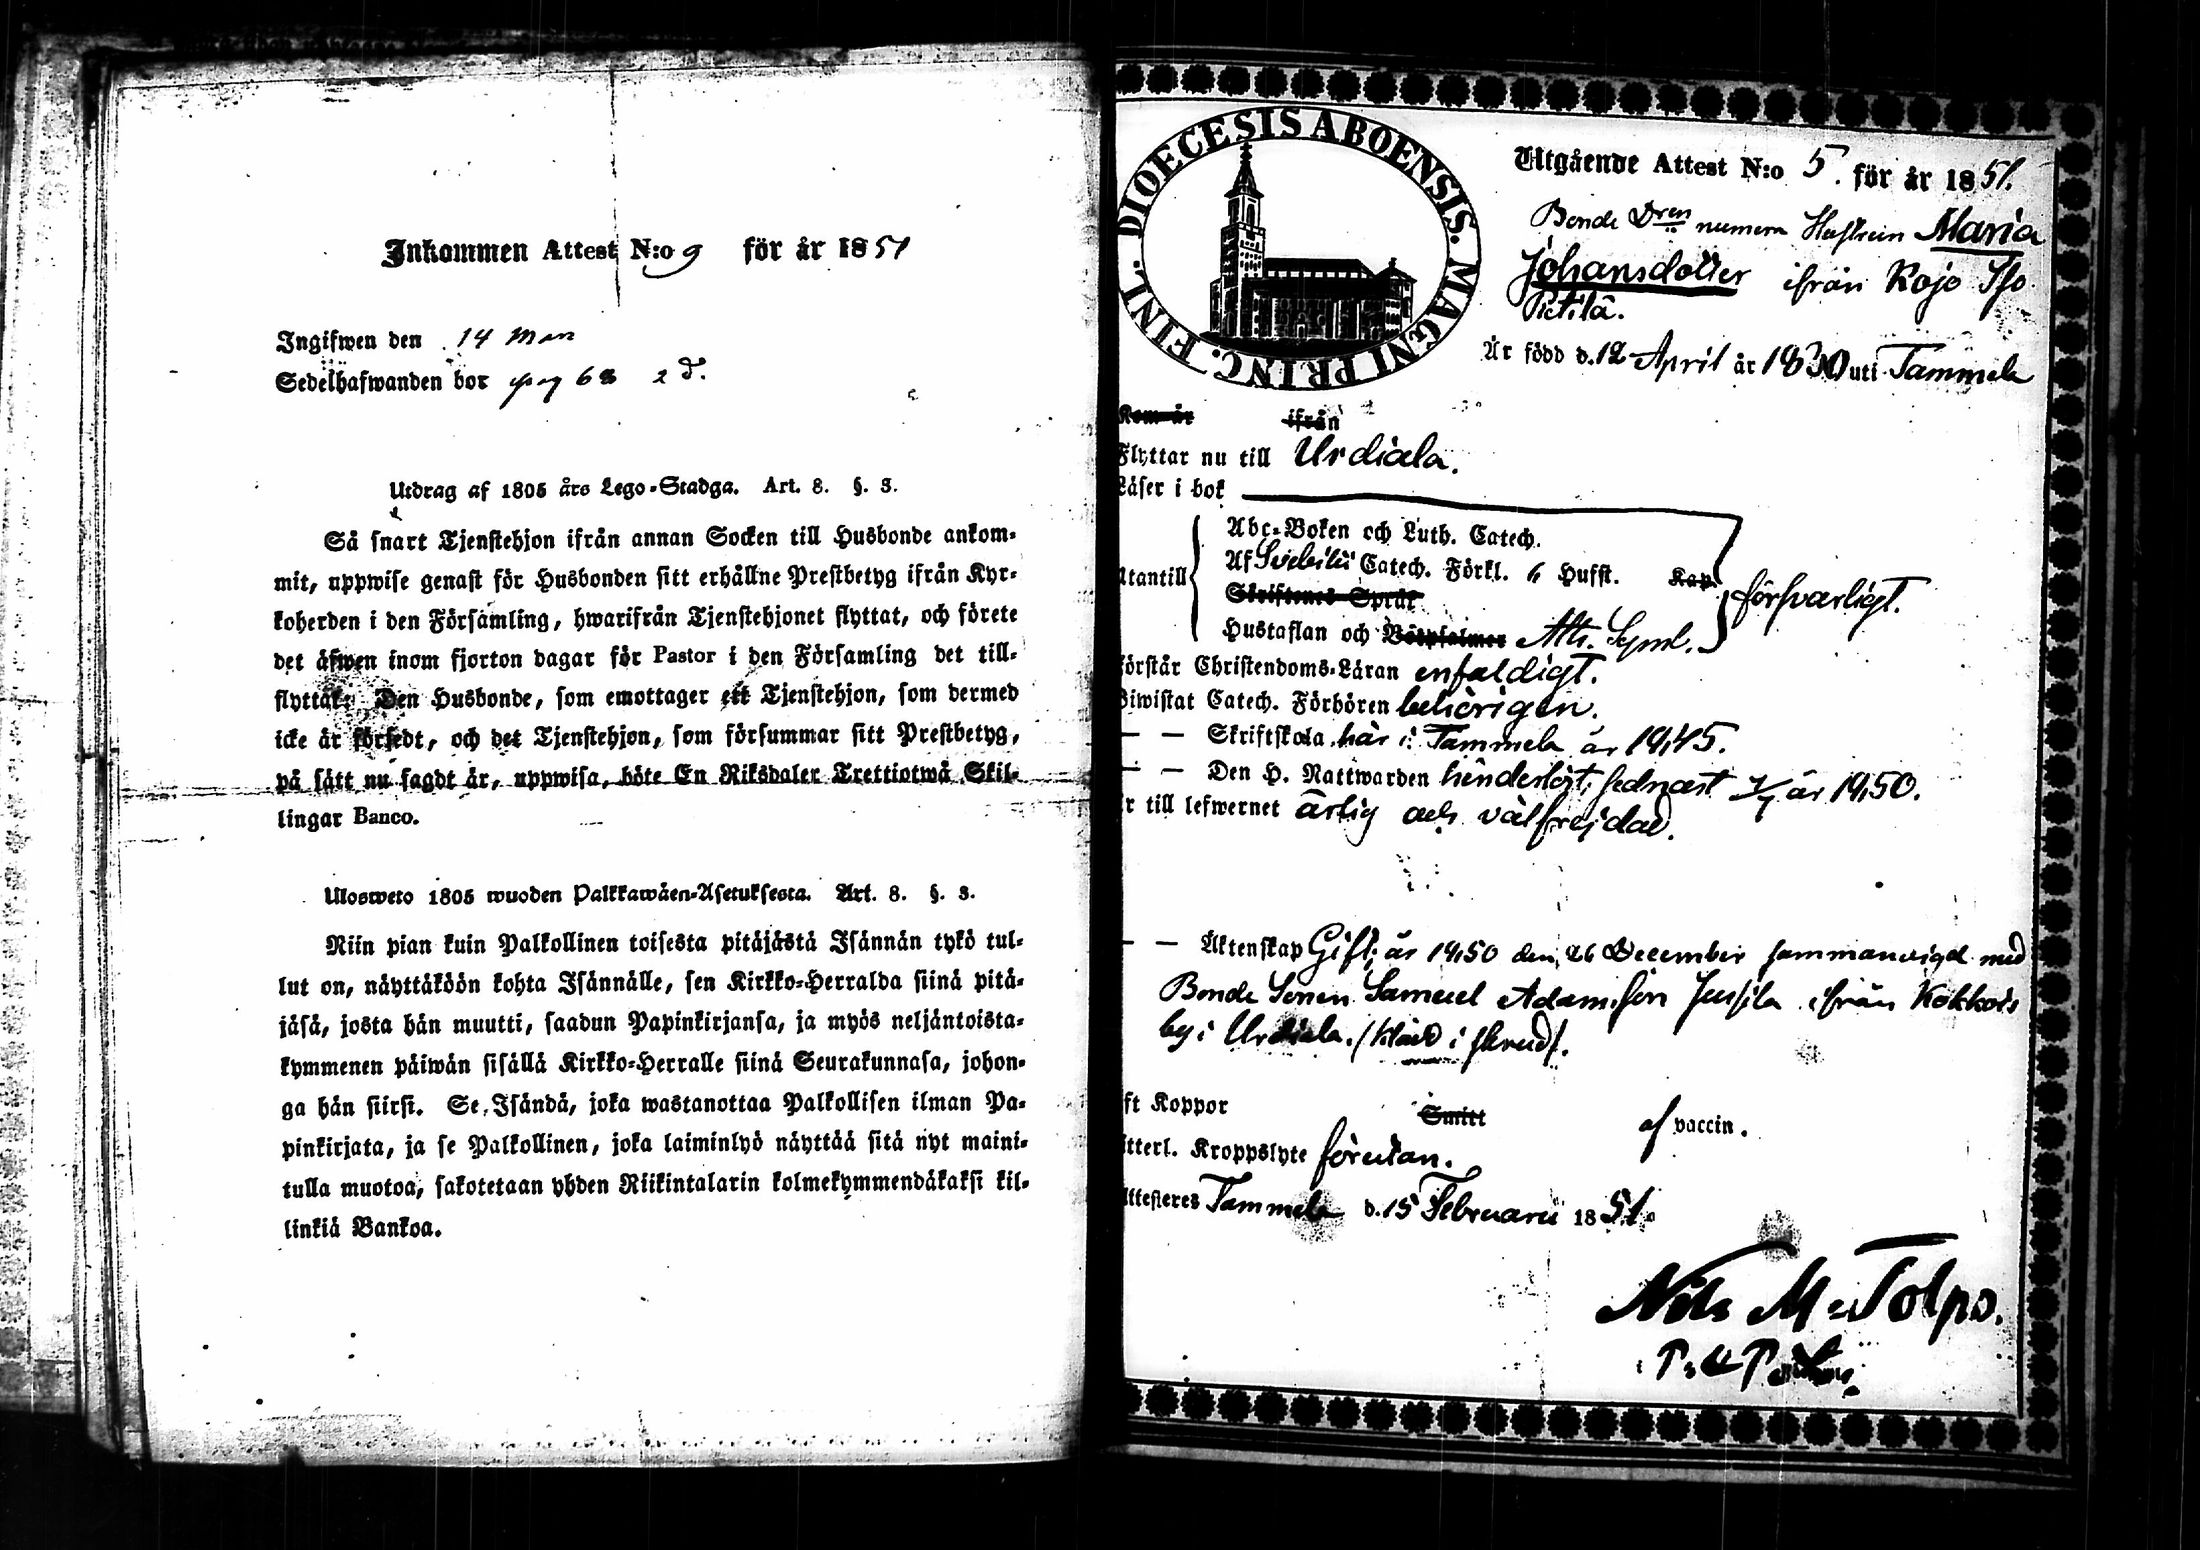 Inkommen Attest N:o 9 för år 1851
Ingifwen den 14 Mars
Sedelhafwanden bor pag 68 2 d.
Utdrag af 1805 års Lego-Stadga. Art. 8. §. 3.
Så snart Tjenstehjon ifrån annan Socken till Husbonde ankom-
mit, uppwise genast för Husbonden sitt erhållne Prestbetyg ifrån Kyr-
koherden i den Församling, hwarifrån Tjenstehjonet flyttat, och förete
det äfwen inom fjorton dagar för Pastor i den Församling det till-
flyttat. Den Husbonde, som emottager ett Tjenstehjon, som dermed
icke är försedt, och det Tjenstehjon, som försummar sitt Prestbetyg,
på sätt nu sagdt är, uppwisa, böte En Riksdaler Trettiotwå Skil-
lingar Banco.
Ulosweto 1805 wuoden Palkkawäen-Asetuksesta. Art. 8. §. 3.
Niin pian kuin Palkollinen toisesta pitäjästä Isännän tykö tul-
lut on, näyttäköön kohta Isännälle, sen Kirkko-Herralda siinä pitä-
jäsä, josta hän muutti, saadun Papinkirjansa, ja myös neljäntoista-
kymmenen päiwän sisällä Kirkko-Herralle siinä Seurakunnasa, johon-
ga hän siirsi. Se Isändä, joka wastanottaa Palkollisen ilman Pa-
pinkirjata, ja se Palkollinen, joka laiminlyö näyttää sitä nyt maini-
tulla muotoa, sakotetaan yhden Riikintalarin kolmekymmendäkaksi kil-
linkiä Bankoa.
DIOECESIS ABOENSIS. MAGNI PRINC. FINL.
Utgående Attest N:o 5. för år 1851.
Bonde Dren numera Hustrun Maria
Johansdotter ifrån Kojo Iso
Pietilä.
Är född d. 12 April år 1830 uti Tammela
Kom år ifrån
Flyttar nu till Urdiala.
Läser i bok
Abc-Boken och Luth. Catech.
Utantill Af Svebilii Catech. Förkl. 6 Hufst. Kap. försvarligt.
Skriftenes Språk
Hustaflan och Botpsalmer Ath. Symb.
Förstår Christendoms-Läran enfaldigt.
Biwistat Catech. Förhören behörigen.
— — Skriftskola här i Tammela år 1845.
— — Den H. Nattwarden sednast år 1850.
r till lefwernet ärlig och välfrejdad.
— — Äktenskap Gift; år 1850 den 26 December sammanvigd med
Bonde Sonen Samuel Adamsson Jussila ifrån Kokkois
by i Urdiala. (Klädd i skrud).
ft Koppor Smitt af vaccin.
tterl. Kroppslyte förutan.
Attesteres Tammela d. 15 Februarii 1851.
Nils M. Tolpo.